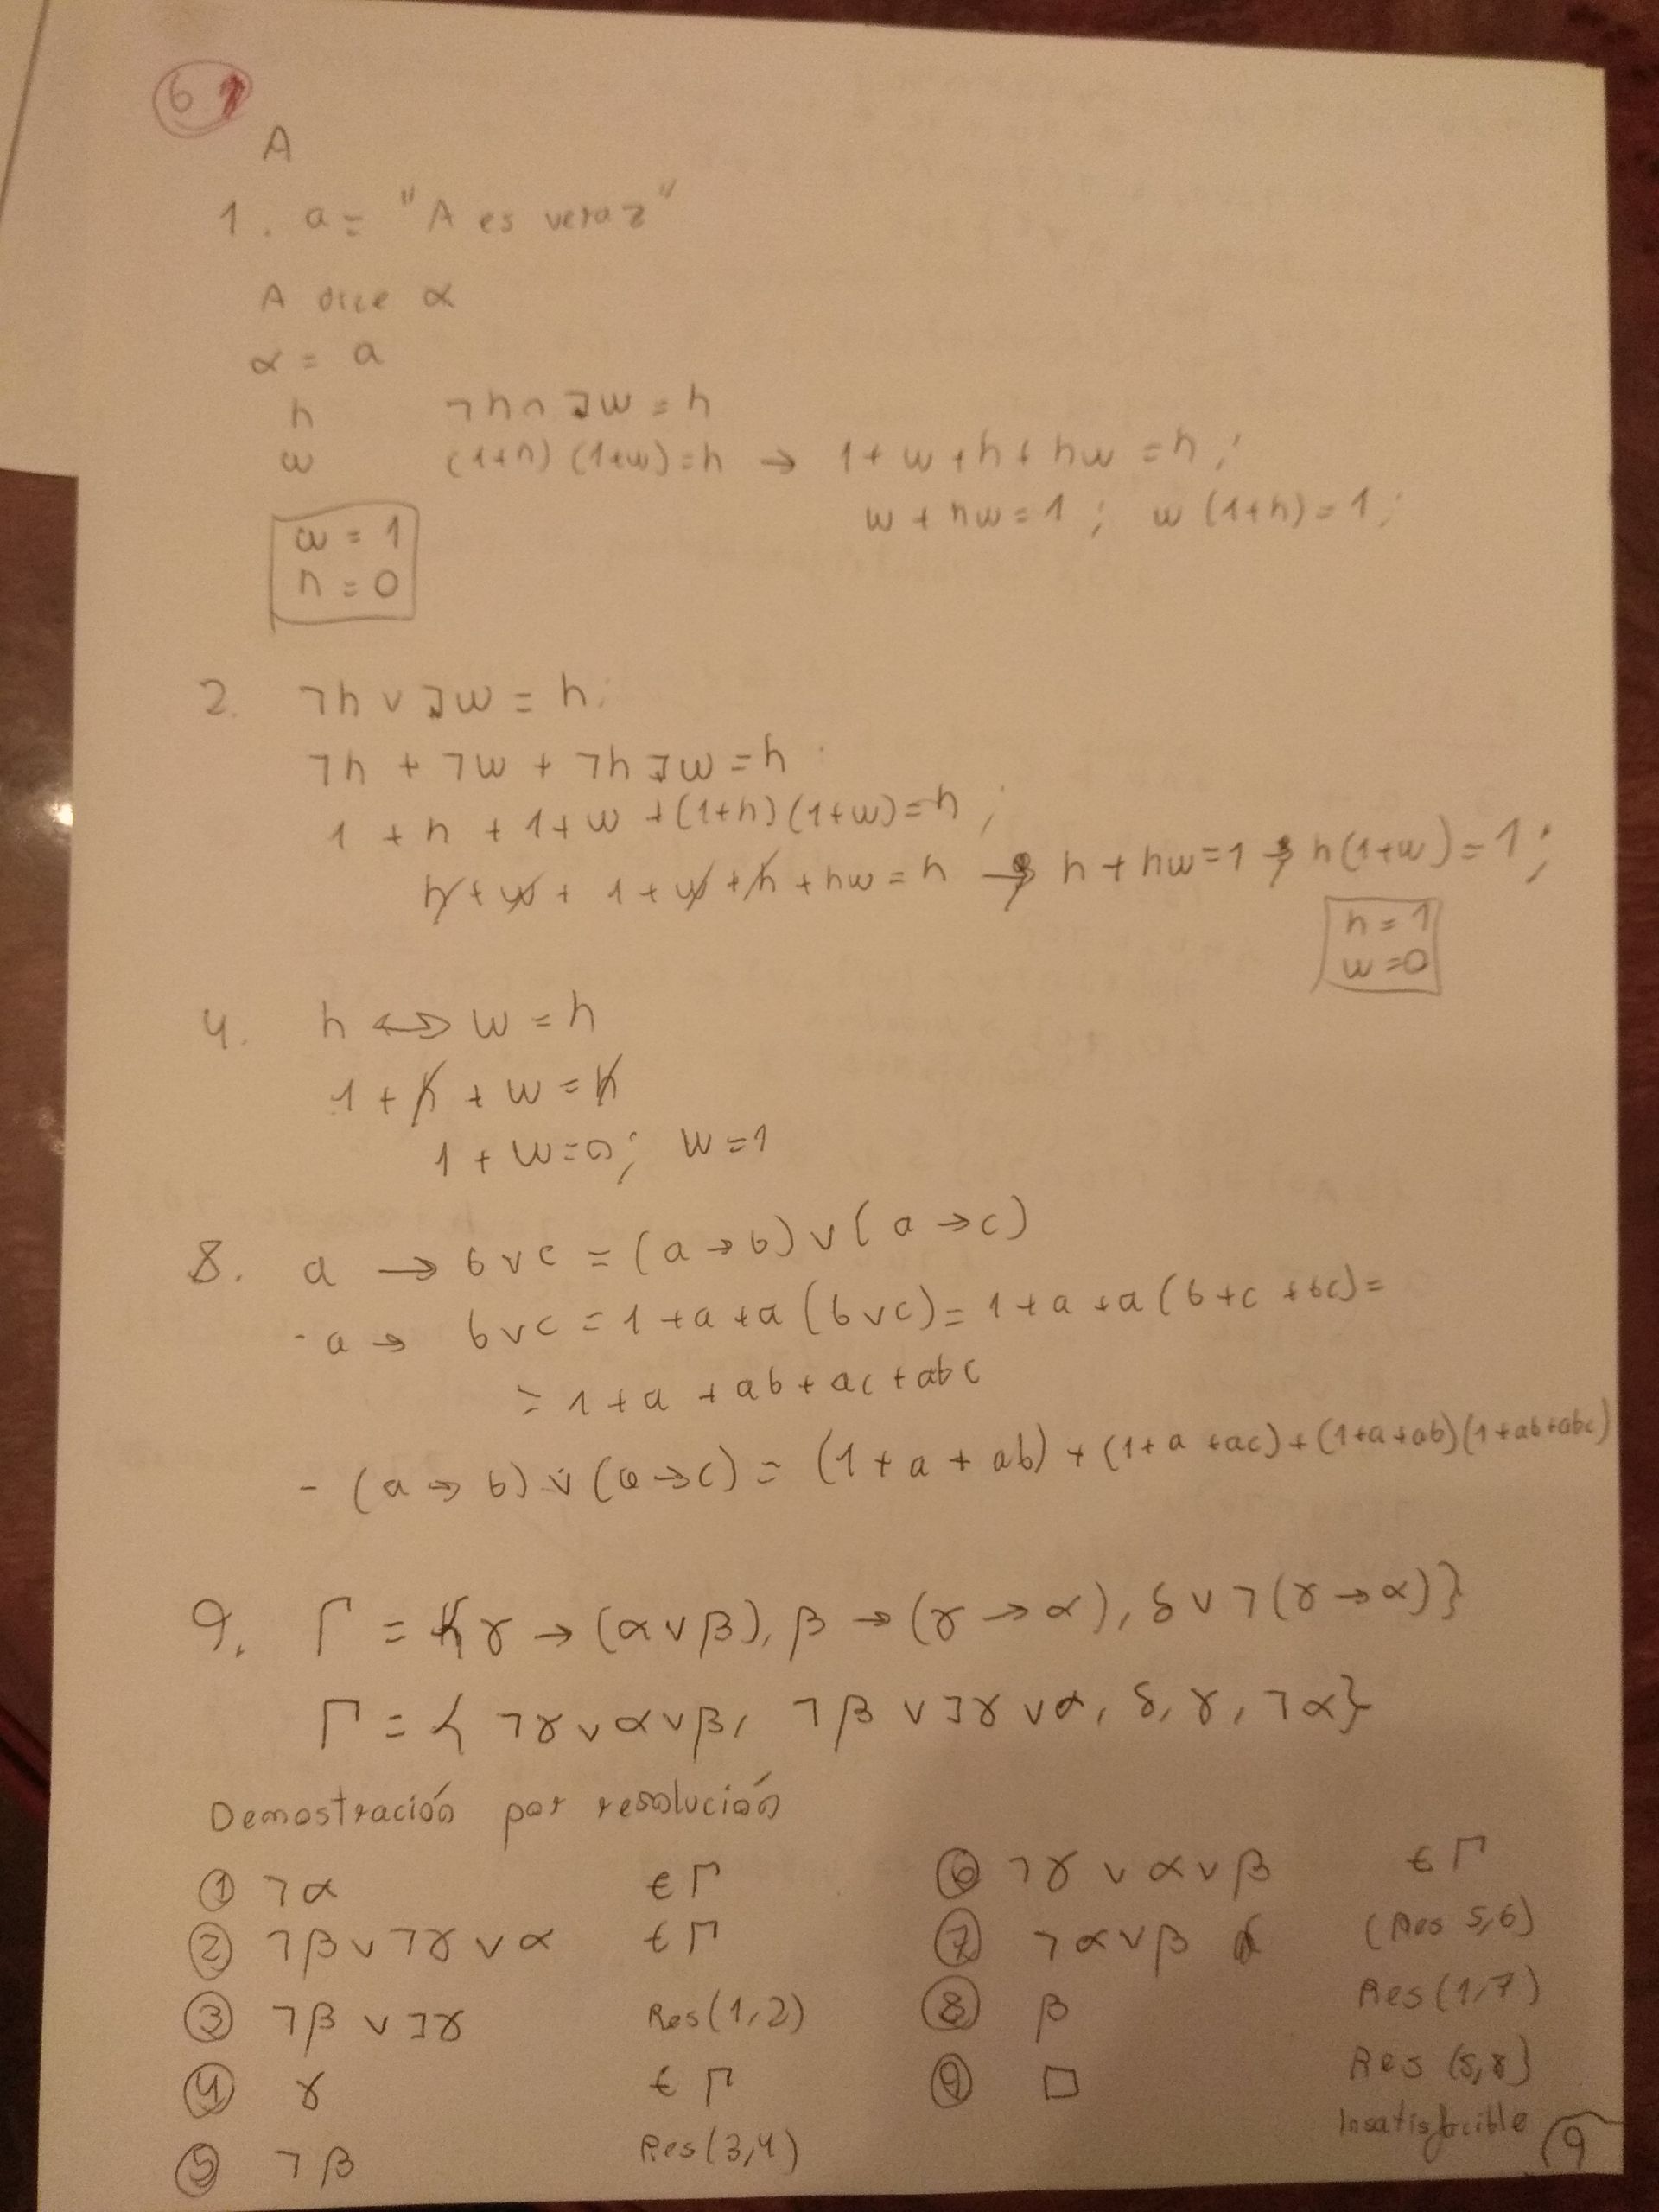 61
A
1. a = "A es veraz"
A dice α
α = a
h ¬h ∧ ¬w = h
w (1+h) (1+w) = h → 1 + w + h + hw = h;
w + hw = 1 ; w (1+h) = 1;
w = 1
h = 0
2. ¬h ∨ ¬w = h;
¬h + ¬w + ¬h ¬w = h
1 + h + 1 + w + (1+h) (1+w) = h;
h + w + 1 + w + h + hw = h → h + hw = 1 → h(1+w) = 1;
h = 1
w = 0
4. h ↔ w = h
1 + h + w = h
1 + w = 0; w = 1
8. a → b ∨ c = (a → b) ∨ (a → c)
- a → b ∨ c = 1 + a + a (b ∨ c) = 1 + a + a (b + c + bc) =
= 1 + a + ab + ac + abc
- (a → b) ∨ (a → c) = (1 + a + ab) + (1 + a + ac) + (1 + a + ab) (1 + ab + abc)
9. Γ = {γ → (α ∨ β), β → (γ → α), δ ∨ ¬(γ → α)}
Γ = { ¬γ ∨ α ∨ β, ¬β ∨ ¬γ ∨ α, δ, γ, ¬α}
Demostración por resolución
① ¬α ∈ Γ
② ¬β ∨ ¬γ ∨ α ∈ Γ
③ ¬β ∨ ¬γ Res(1,2)
④ γ ∈ Γ
⑤ ¬β Res(3,4)
⑥ ¬γ ∨ α ∨ β ∈ Γ
⑦ ¬α ∨ β (Res 5,6)
⑧ β Res(1,7)
⑨ □ Res (5,8)
Insatisfacible
9